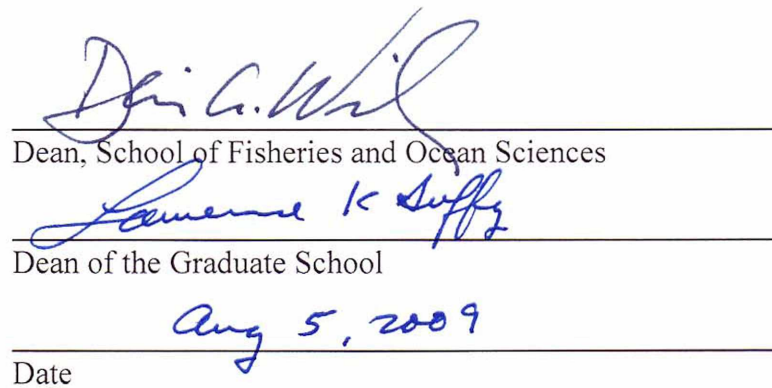 Dean, School of Fisheries and Ocean Sciences
Lawrence K Duffy
Dean of the Graduate School
Aug 5, 2009
Date